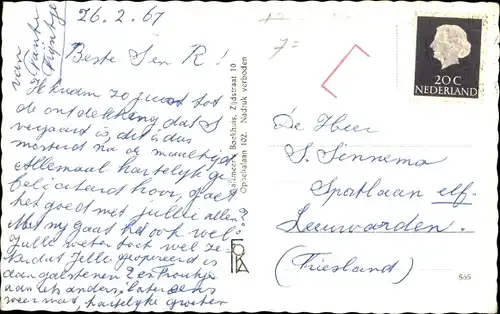 26.2.67
van Tante Fijntje
Beste S en R!
Ik kwam zo juist tot
de ontdekking dat S
verjaard is, dit is dus
mosterd na de maaltijd
Allemaal hartelijk ge
feliciteerd hoor, gaat
het goed met jullie allen?
Met mij gaat het ook wel.
Jullie weten toch wel ze
ker dat Jelle geopereerd is
aan galstenen? en Froukje
aan iets anders, later eens
meer wat, hartelijke groeten
Aalsmeer: Boekhuis, Zijdstraat 10
Ophelialaan 102. Nadruk verboden
FOKA
20 C
NEDERLAND
De Heer
S. Sinnema
Sportlaan elf
Leeuwarden.
(Friesland)